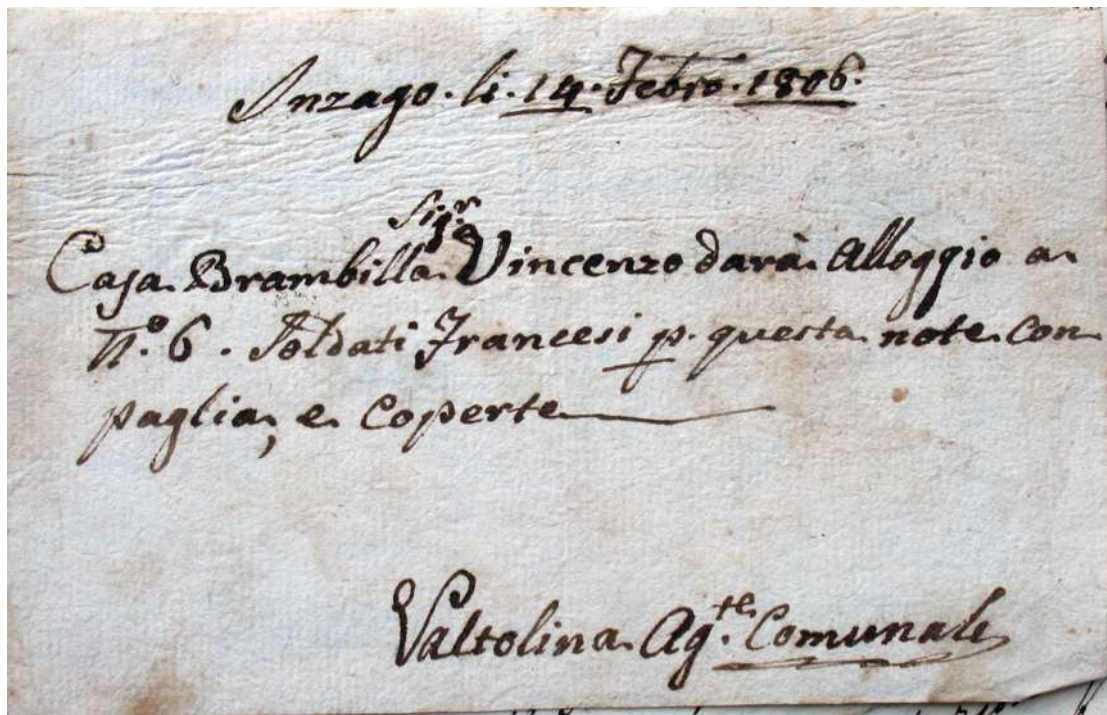 Inzago. li. 14. Febro. 1806.
Sigr.
Casa Brambilla Vincenzo darà Alloggio a
N.o 6. Soldati Francesi p. questa note con
paglia, e Coperte
Valtolina Ag.te Comunale